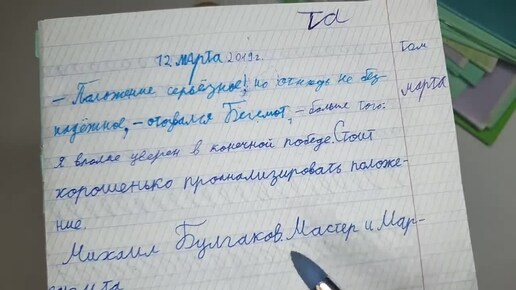 Та
12 марта 2019г.
там
марта
– Положение серьёзное, но отнюдь не без-
надёжное, – отозвался Бегемот, – больше того:
я вполне уверен в конечной победе. Стоит
хорошенько проанализировать положе-
ние.
Михаил Булгаков. Мастер и Мар-